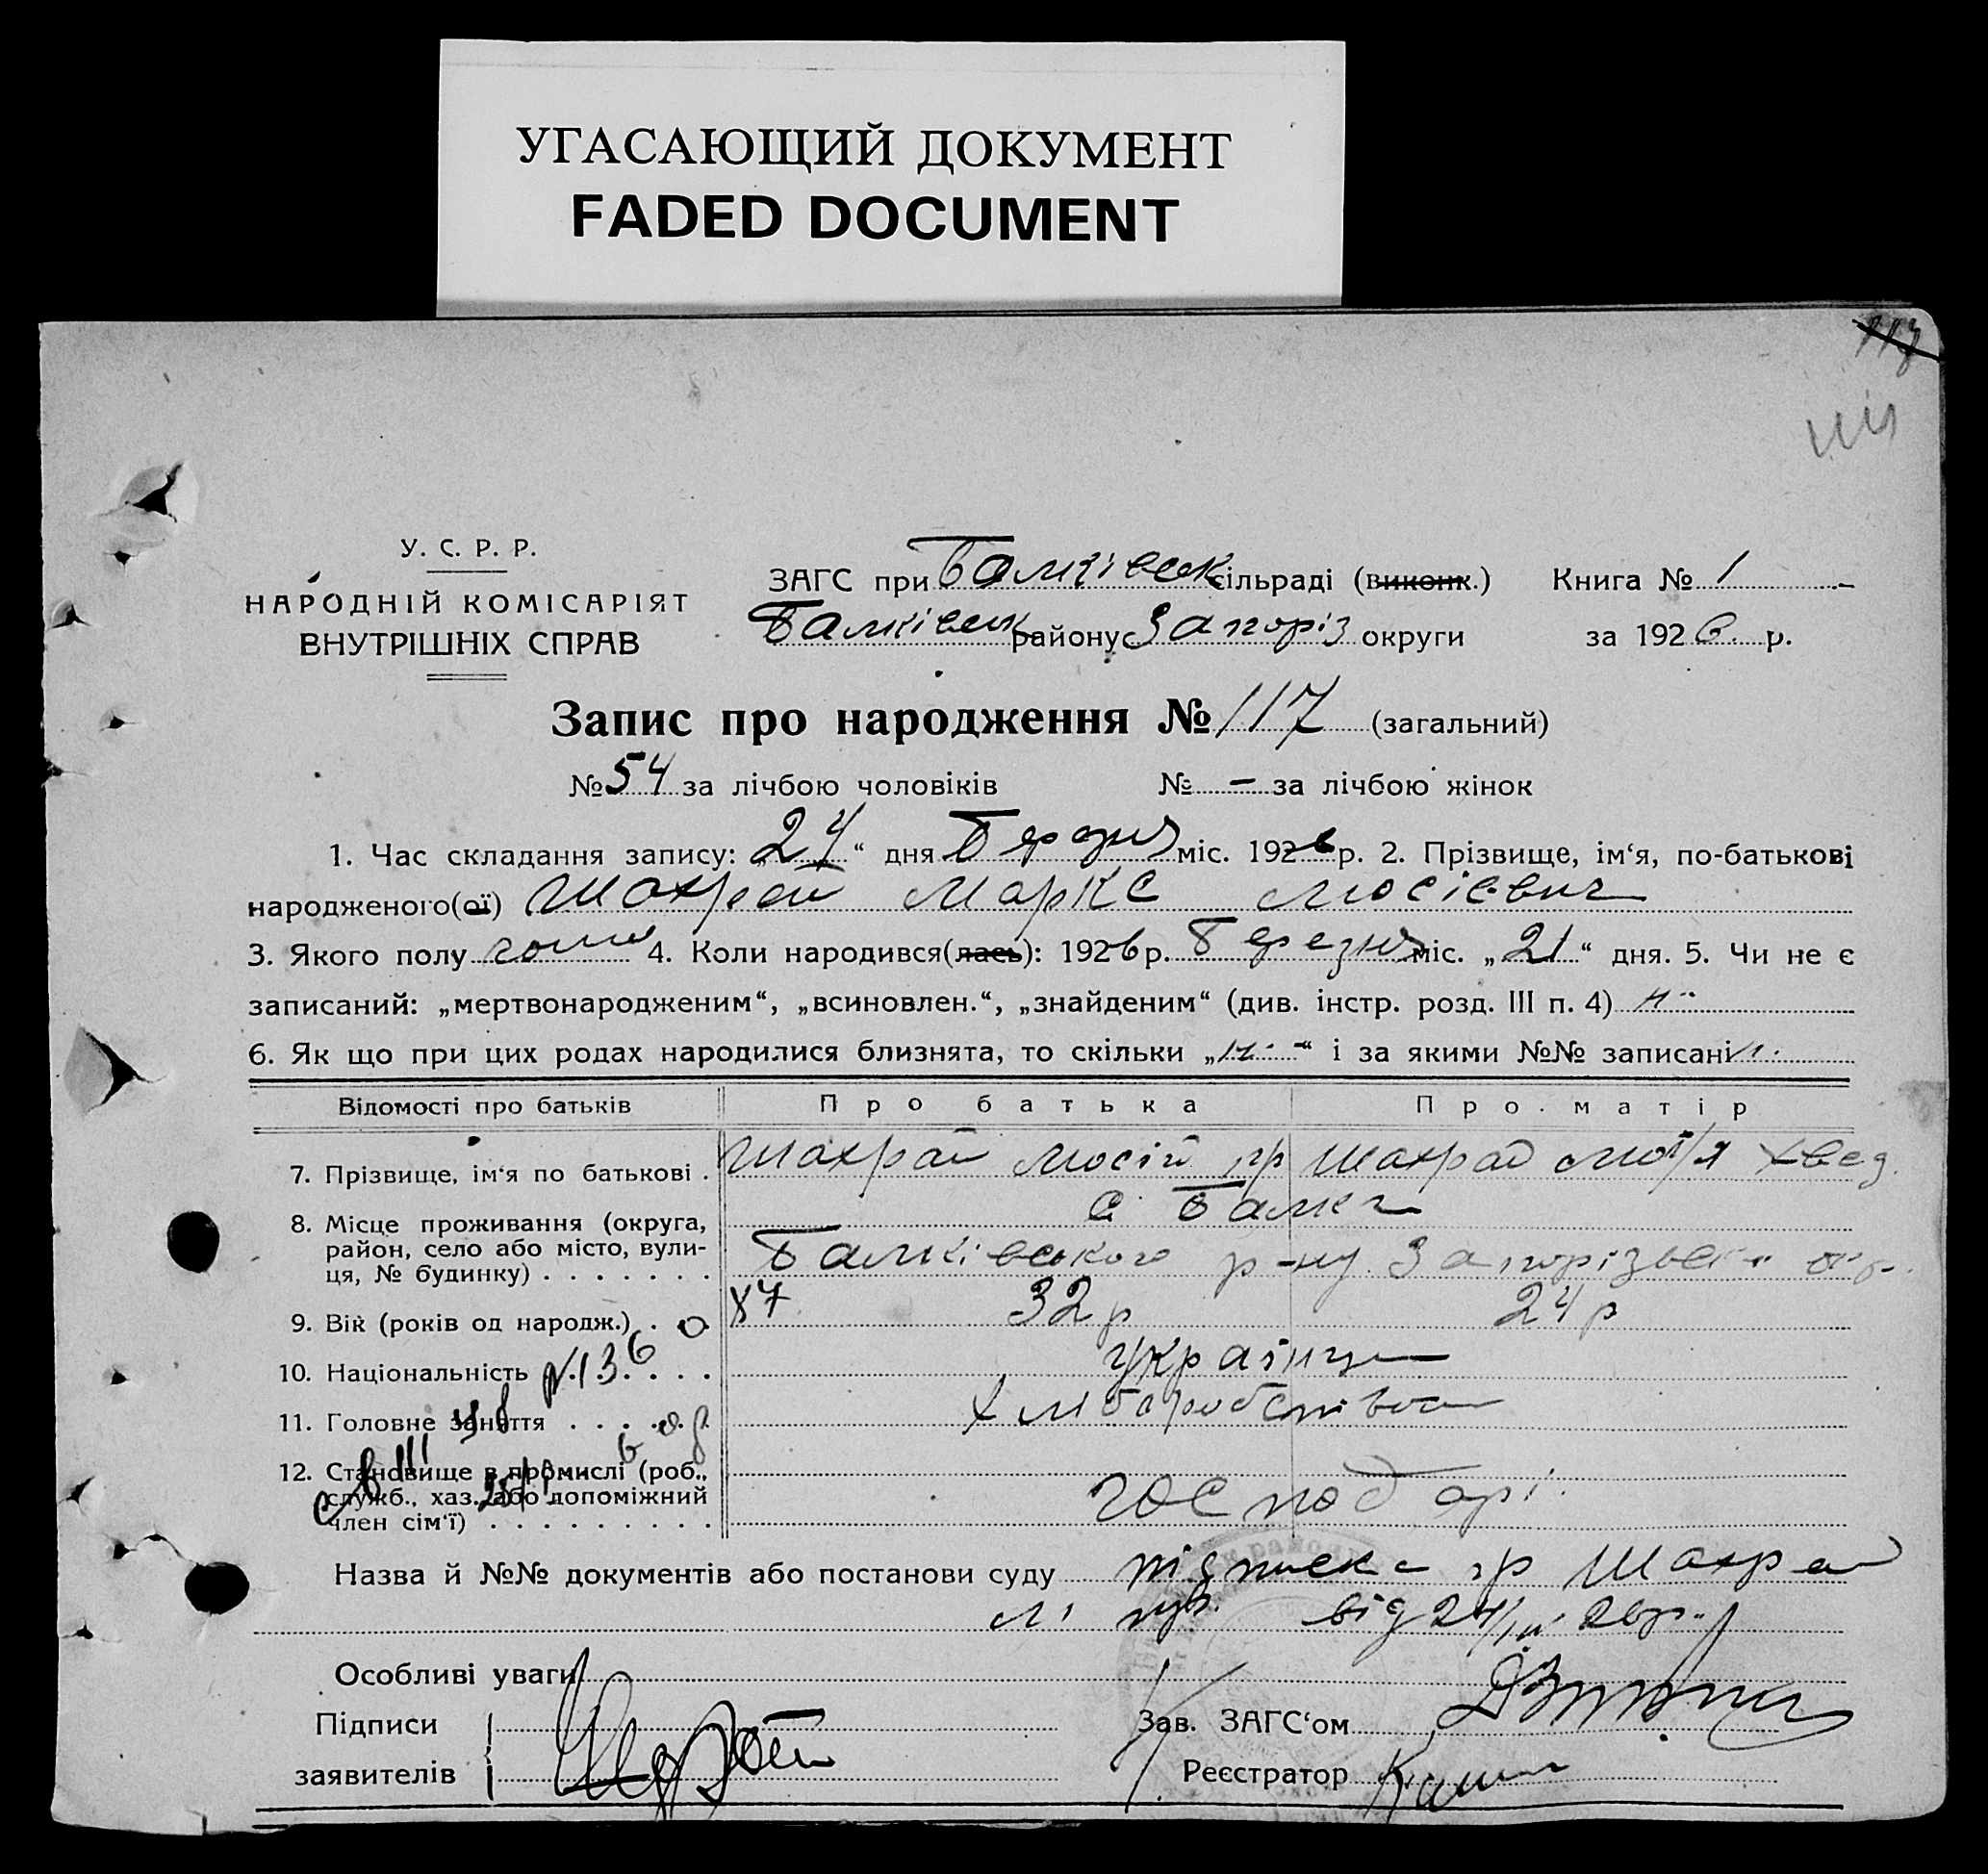 УГАСАЮЩИЙ ДОКУМЕНТ
FADED DOCUMENT
113
У. С. Р. Р.
НАРОДНІЙ КОМІСАРІЯТ
ВНУТРІШНІХ СПРАВ
ЗАГС при Балківськ сільраді (виконк.) Книга № 1
Балківськ району Запоріз округи за 1926 р.
Запис про народження № 117 (загальний)
№ 54 за лічбою чоловіків № - за лічбою жінок
1. Час складання запису: „24“ дня Березня міс. 1926 р. 2. Прізвище, ім‘я, по-батькові
народженого(ої) Шахрай Марко Мосієвич
3. Якого полу чолов 4. Коли народився(лась): 1926 р. Березня міс. „21“ дня. 5. Чи не є
записаний: „мертвонародженим“, „всиновлен.“, „знайденим“ (див. інстр. розд. III п. 4) н
6. Як що при цих родах народилися близнята, то скільки „н -“ і за якими №№ записані н.
Відомості про батьків Про батька Про матір
7. Прізвище, ім‘я по батькові . Шахрай Мосій гр Шахрай Хвед.
8. Місце проживання (округа, с Балки
район, село або місто, вули-
ця, № будинку) . . . . . . . Балківського р-ну Запорізьк окр.
9. Вік (років од народж.) . 32 р 24 р
10. Національність . . . . українці
11. Головне заняття . . . . хліборобство
12. Становище в промислі (роб.,
служб., хаз. або допоміжний господарі
член сім‘ї) . . . . . . . . .
Назва й №№ документів або постанови суду підписка гр Шахрая
від 24/III 26р.
Особливі уваги
Підписи Зав. ЗАГС‘ом
заявителів Шахрай Реєстратор